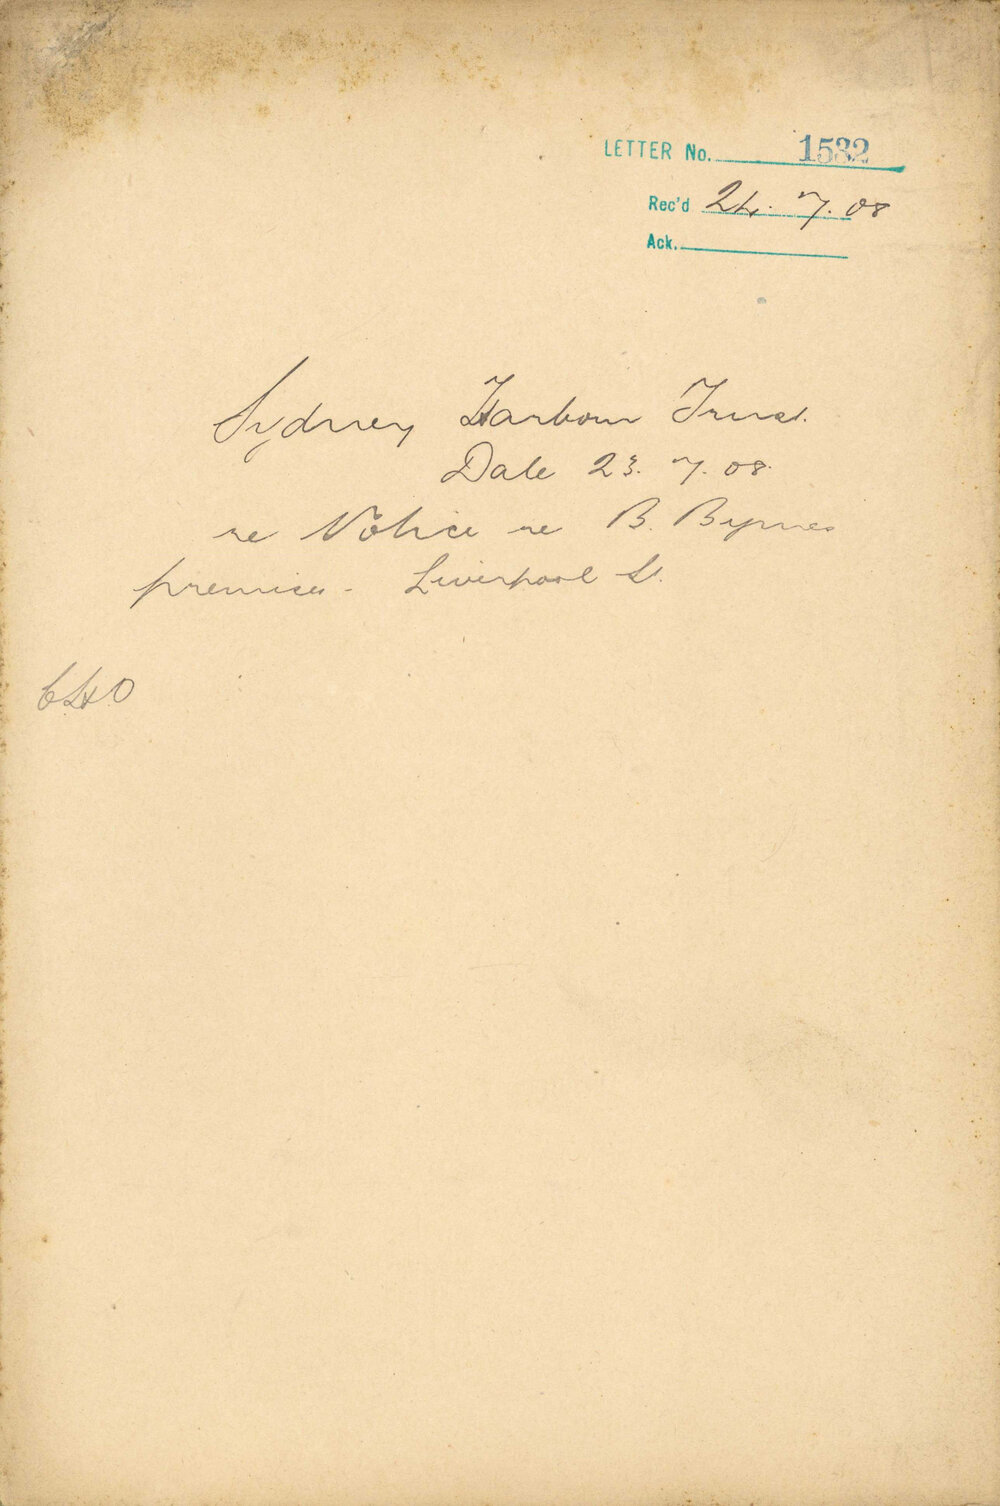 LETTER No. 1532
Rec'd 24. 7. 08
Ack.
Sydney Harbour Trust.
Date 23. 7. 08.
re Notice re B. Byrnes
premises - Liverpool St.
C.H.O